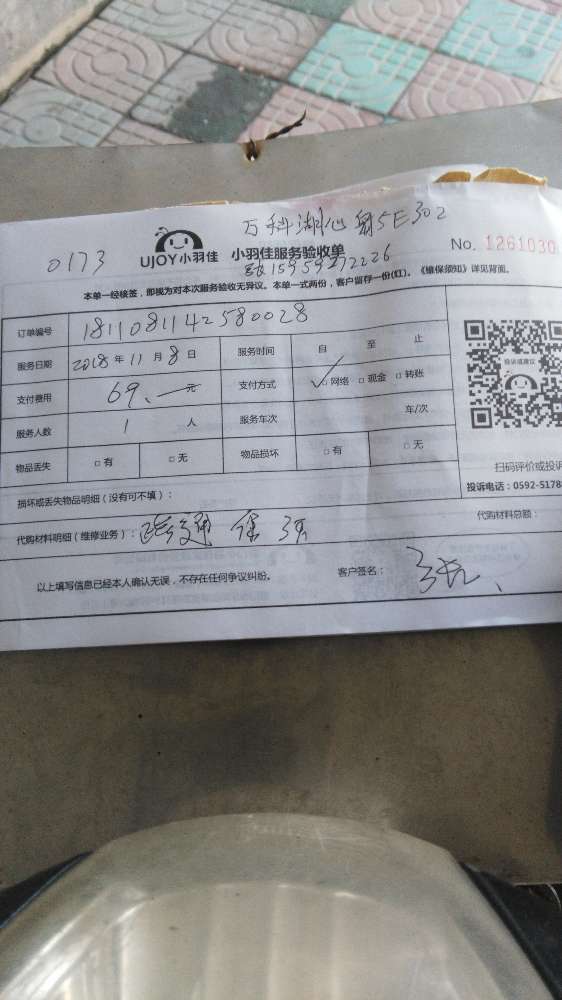 万科湖心岛5E302
0173
UJOY小羽佳 小羽佳服务验收单 No. 1261030
15959272226
本单一经核签，即视为对本次服务验收无异议。本单一式两份，客户留存一份(红)。《维保须知》详见背面。
订单编号 1811081142580028
服务日期 2018年 11月 8日 服务时间 自 至 止
支付费用 69.一元 支付方式 ☑网络 □现金 □转账
服务人数 1 人 服务车次 车/次
物品丢失 □有 □无 物品损坏 □有 □无
扫码评价或投诉
投诉电话：0592-5178
损坏或丢失物品明细（没有可不填）：
代购材料明细（维修业务）： 疏通 代购材料总额：
以上填写信息已经本人确认无误，不存在任何争议纠纷。 客户签名：